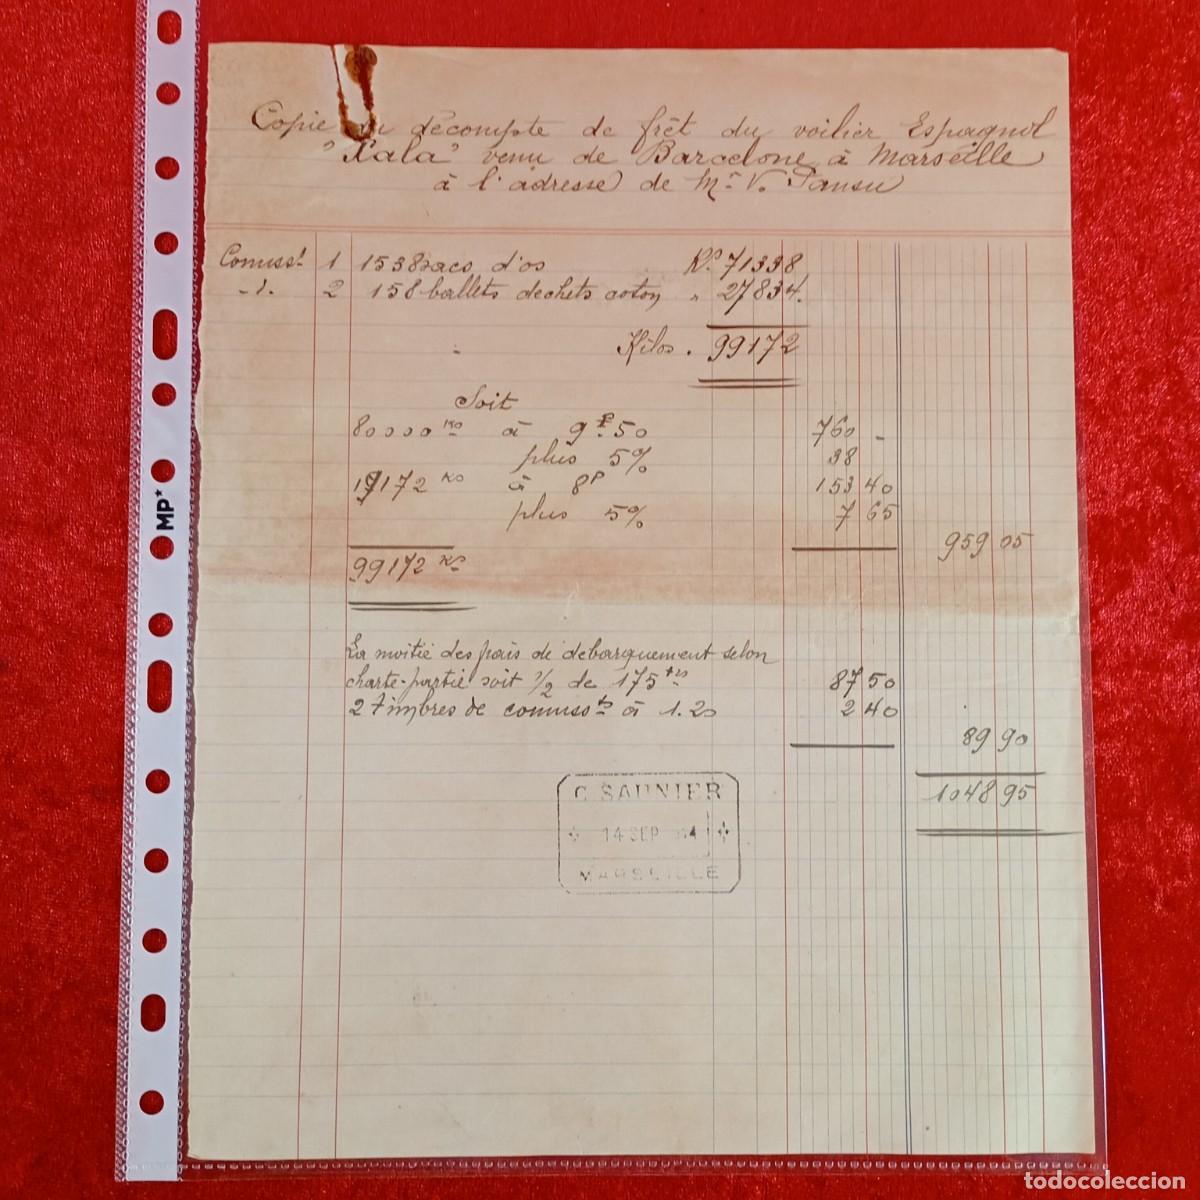 Copie du décompte de frêt du voilier Espagnol
"Xala" venu de Barcelone à Marseille
à l'adresse de Mr V. Pansu
Connss.t 1 1538 sacs d'os Ks. 71338
-d°- 2 158 ballets dechets coton " 27834.
Kilos. 99172
Soit
80000 kos à 9 F 50 760 -
plus 5% 38
19172 ks à 8 F 153 40
plus 5% 7 65
959 05
99172 Ks
La moitié des frais de débarquement selon
charte-partie soit 1/2 de 175 frs 87 50
2 Timbres de connss.ts à 1.20 2 40
89 90
1048 95
C. SAUNIER
14 SEP 4
MARSEILLE
MP*
todocoleccion